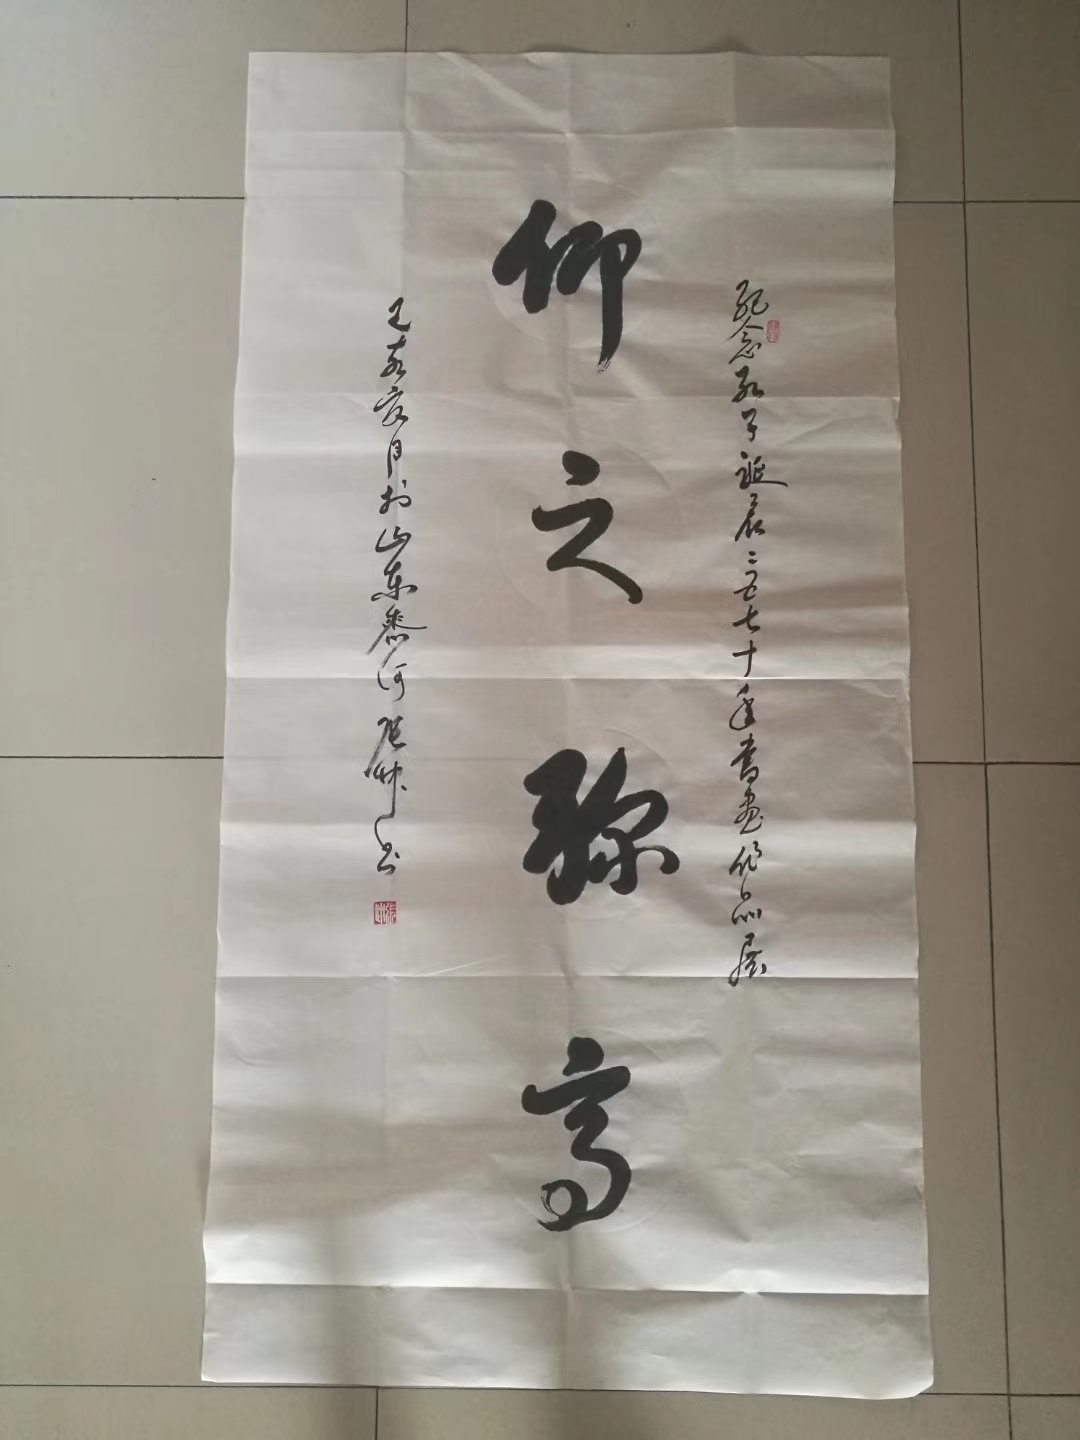 纪念孔子诞辰二五七十年书画作品展
仰之弥高
夏月于山东泰河张书